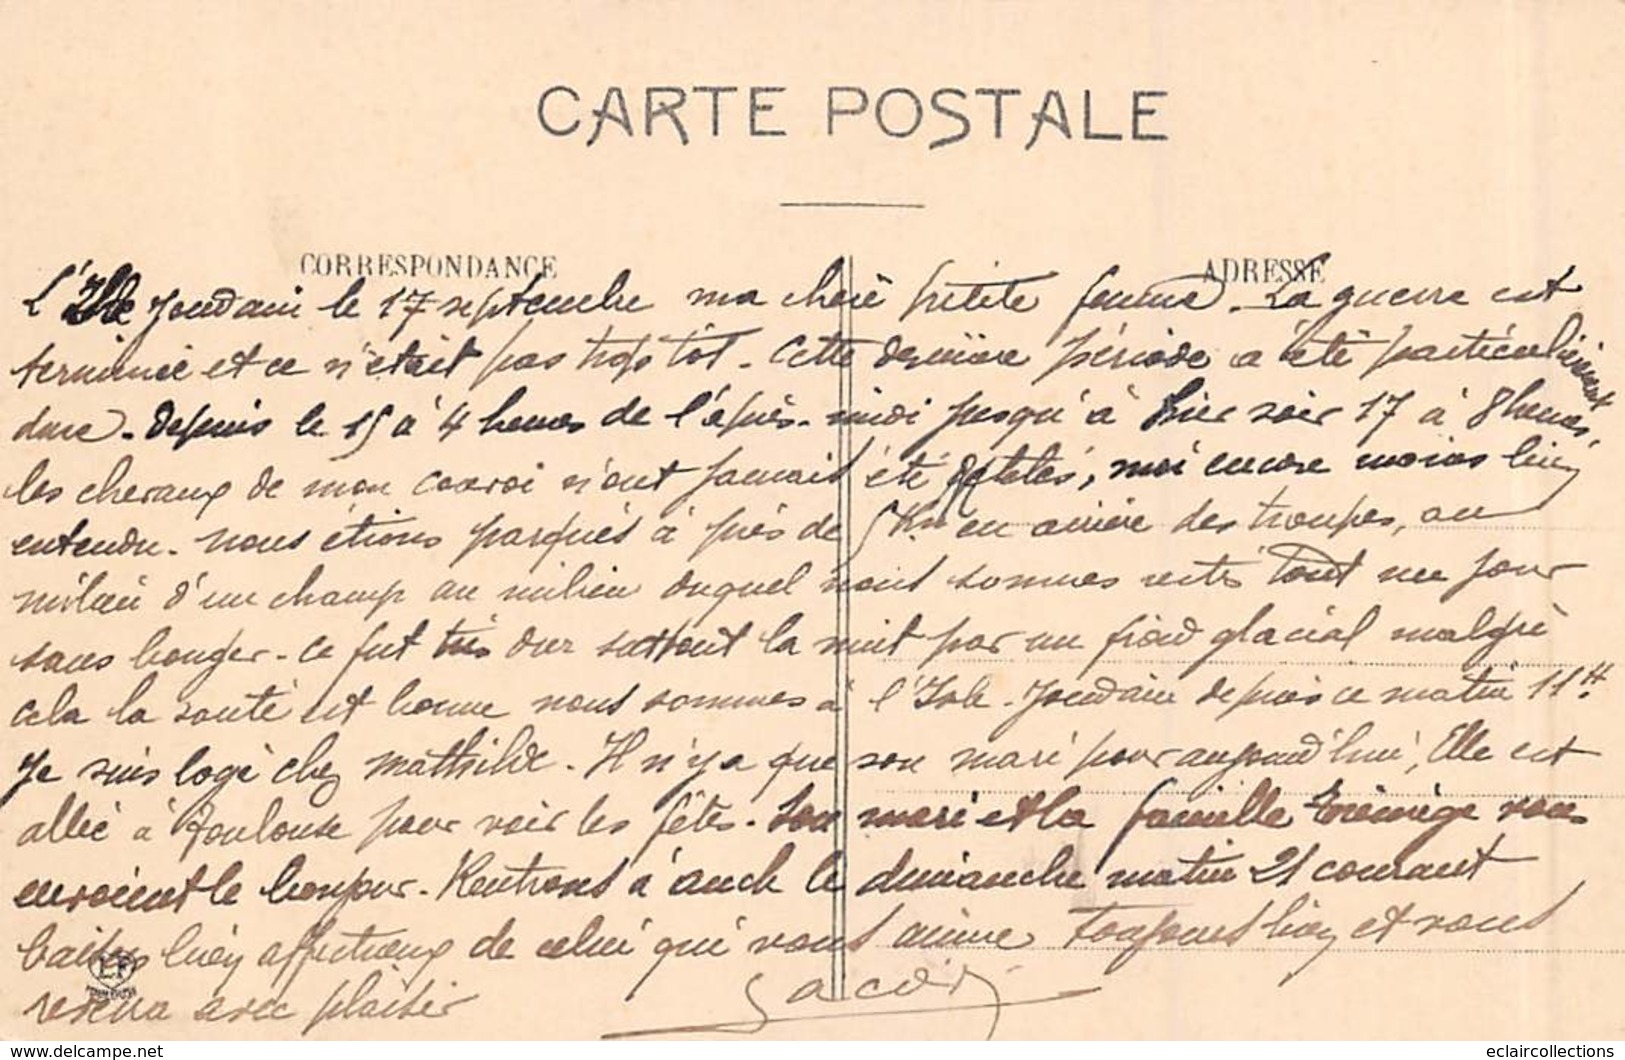 CARTE POSTALE
CORRESPONDANCE
ADRESSE
L'Isle Jourdain le 17 septembre ma chère petite femme. La guerre est
terminée et ce n'était pas trop tôt. Cette dernière période a été particulièrement
dure. Depuis le 15 à 4 heures de l'après-midi jusqu'à hier soir 17 à 8 heures,
les chevaux de mon convoi n'ont jamais été dételés, moi encore moins bien
entendu. Nous étions parqués à près de 5 Km en arrière des troupes, au
milieu d'un champ au milieu duquel nous sommes restés tout un jour
sans bouger. Ce fut très dur surtout la nuit par un froid glacial malgré
cela la santé est bonne nous sommes à l'Isle-Jourdain depuis ce matin 11H
Je suis logé chez Mathilde. Il n'y a que son mari pour aujourd'hui, Elle est
allée à Toulouse pour voir les fêtes. Son mari et la famille vous
envoient le bonjour. Rentrons à Auch le dimanche matin 21 courant
baisers bien affectueux de celui qui vous aime toujours bien et vous
reverra avec plaisir
LF
TOULOUSE
www.delcampe.net
eclaircollections